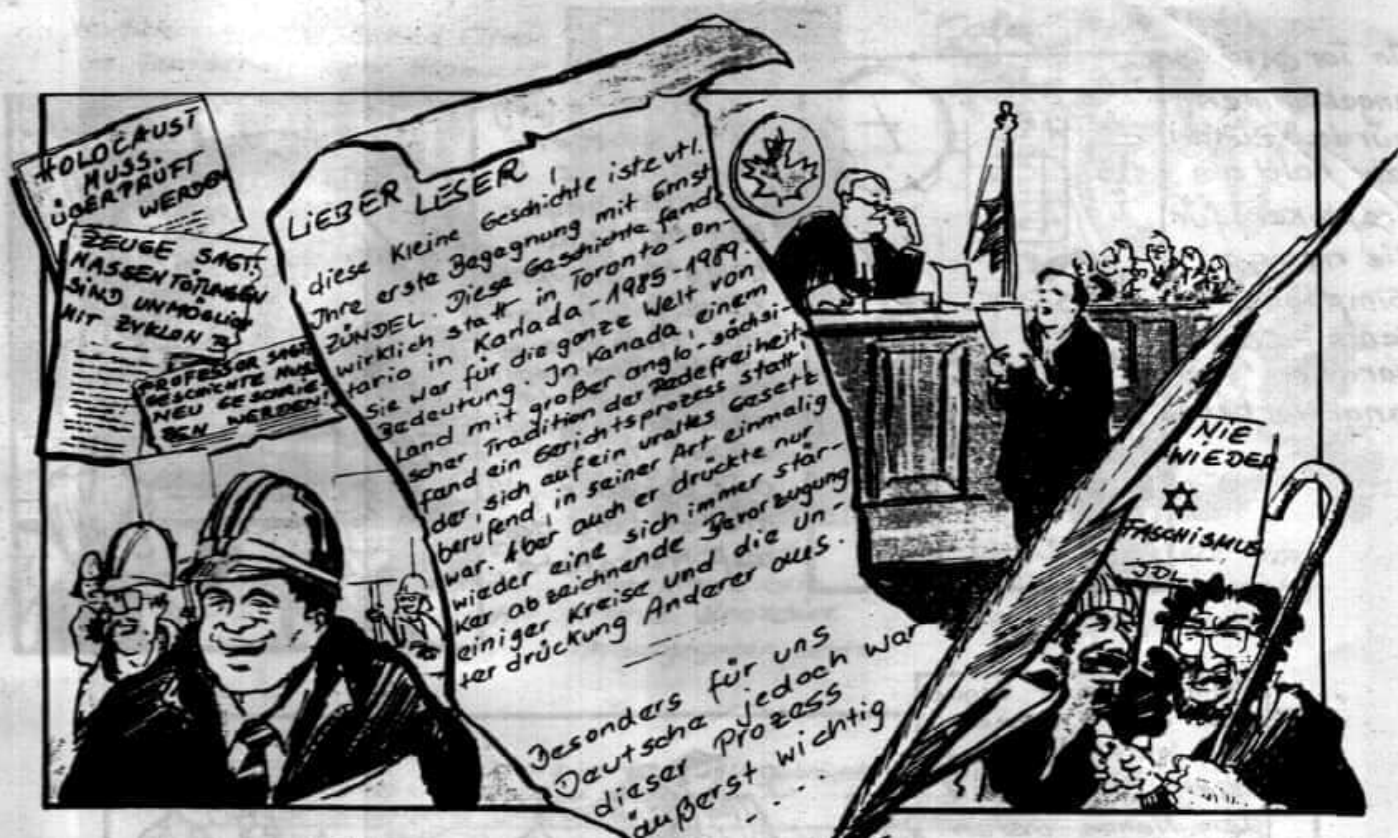 HOLOCAUST
MUSS.
ÜBERPRÜFT
WERDEN
ZEUGE SAGT;
MASSENTÖTUNGEN
SIND UNMÖGLICH
MIT ZYKLON B
PROFESSOR SAGT,
GESCHICHTE MUSS
NEU GESCHRIE-
BEN WERDEN!
LIEBER LESER,
diese kleine Geschichte ist evtl.
Ihre erste Begegnung mit Ernst
ZÜNDEL. Diese Geschichte fand
wirklich statt in Toronto-On-
tario in Kanada-1985-1989.
Sie war für die ganze Welt von
Bedeutung. In Kanada, einem
Land mit großer anglo-sächsi-
scher Tradition der Redefreiheit,
fand ein Gerichtsprozess statt
der, sich auf ein uraltes Gesetz
berufend, in seiner Art einmalig
war. Aber auch er drückte nur
wieder eine sich immer stär-
ker abzeichnende Bevorzugung
einiger Kreise und die Un-
terdrückung Anderer aus.
Besonders für uns
Deutsche jedoch war
dieser Prozess
äußerst wichtig
...
NIE
WIEDER
FASCHISMUS
JDL